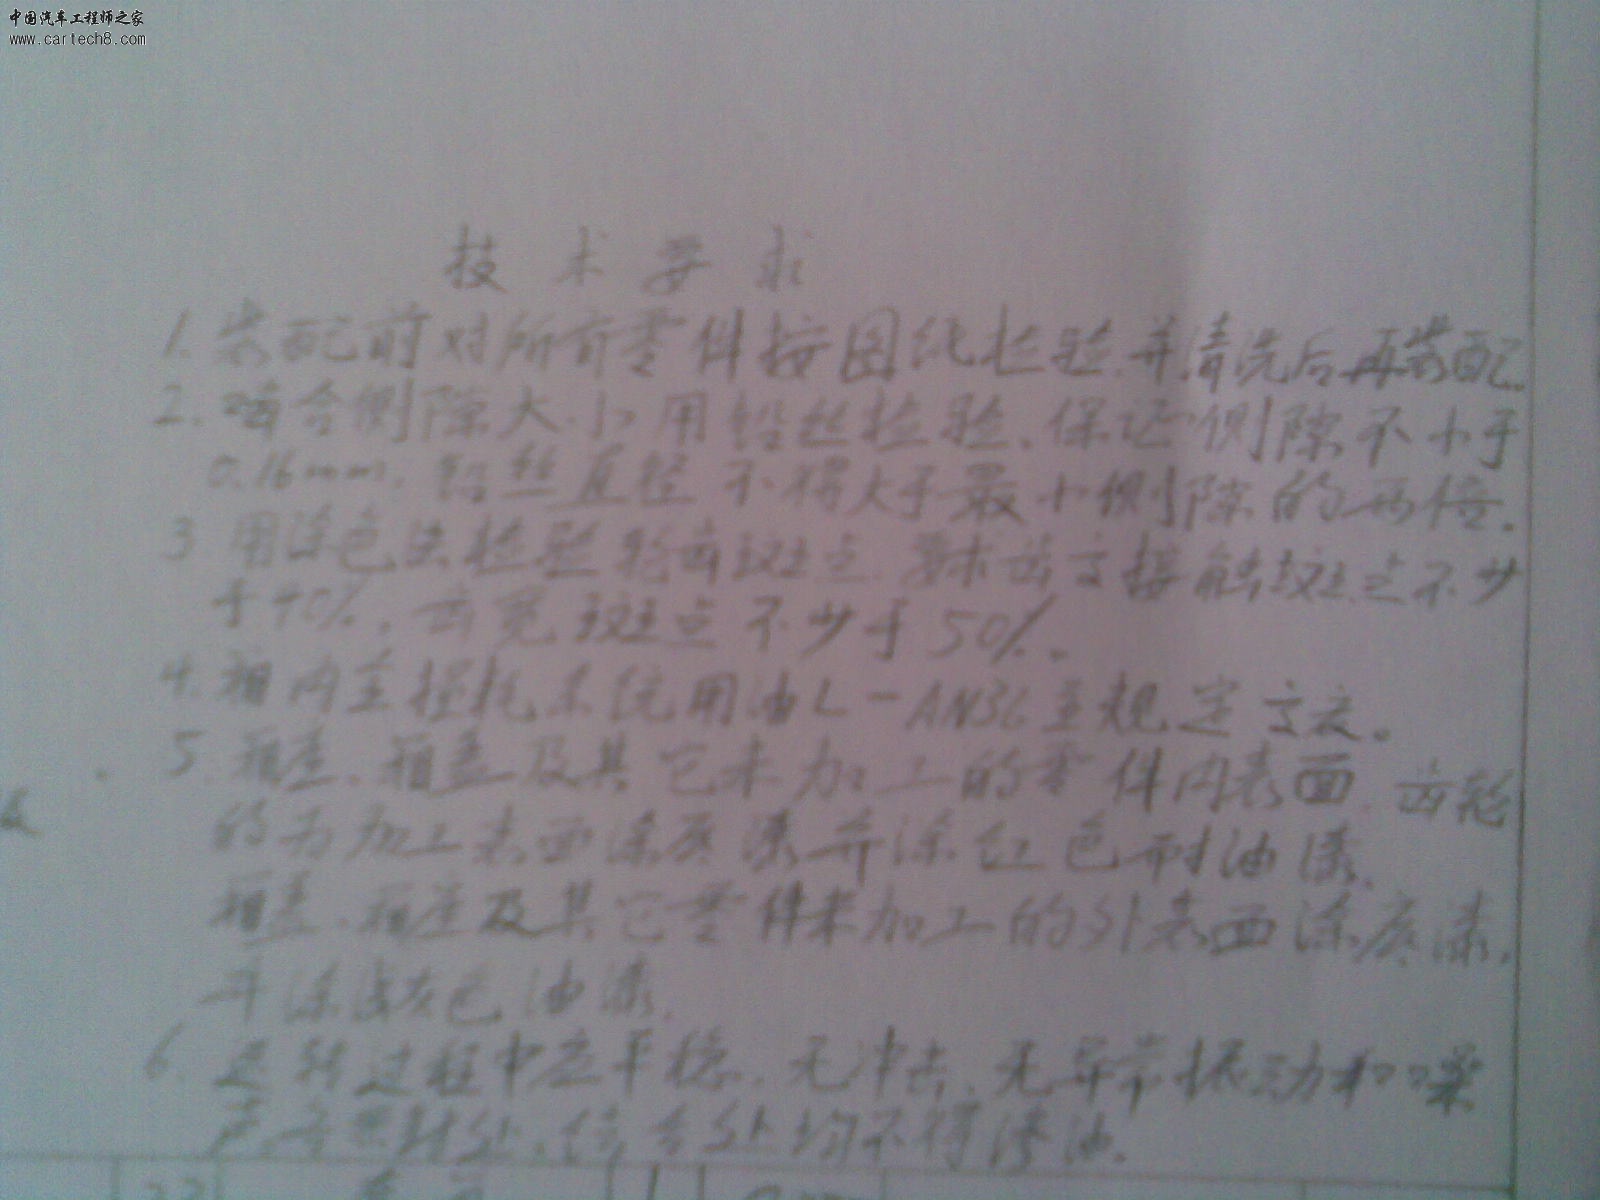 中国汽车工程师之家
www.cartech8.com
技术要求
1.装配前对所有零件按图纸检验,并清洗后再装配
2.啮合侧隙大小用铅丝检验,保证侧隙不小于
0.16mm,铅丝直径不得大于最小侧隙的两倍.
3 用涂色法检验轮齿斑点,要求齿高接触斑点不少
于40%,齿宽斑点不少于50%。
4.箱内全损耗系统用油L-AN36至规定高度。
5 箱盖,及其它未加工的零件内表面,齿轮
的未加工表面涂底漆并涂红色耐油漆.
箱盖,箱座及其它零件未加工的外表面涂底漆,
并涂浅灰色油漆.
6.运转过程中应平稳,无冲击,无异常振动和噪
声,各密封处,结合处均不得渗油.